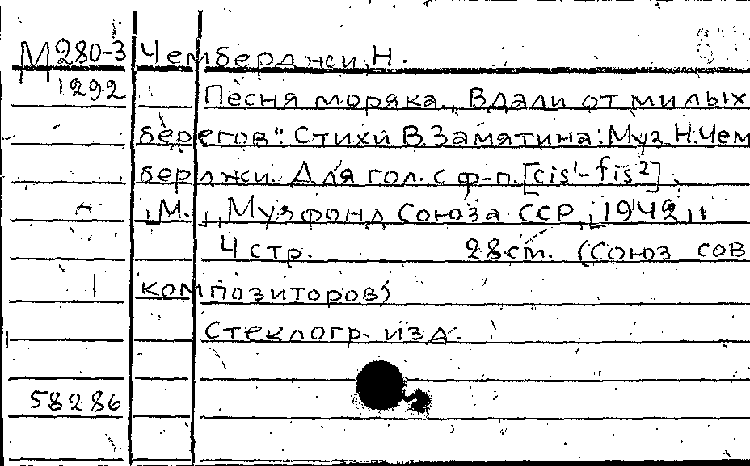 М 280-3 Чемберджи, Н.
1292 Песня моряка. „Вдали от милых
берегов". Стихи В. Замятина. Муз. Н. Чем
берджи. Для гол. с ф-п. [cis¹-fis²].
М., Музфонд Союза ССР, 1942.
4 стр. 28 см. (Союз сов
композиторов)
Стеклогр. изд.
58286